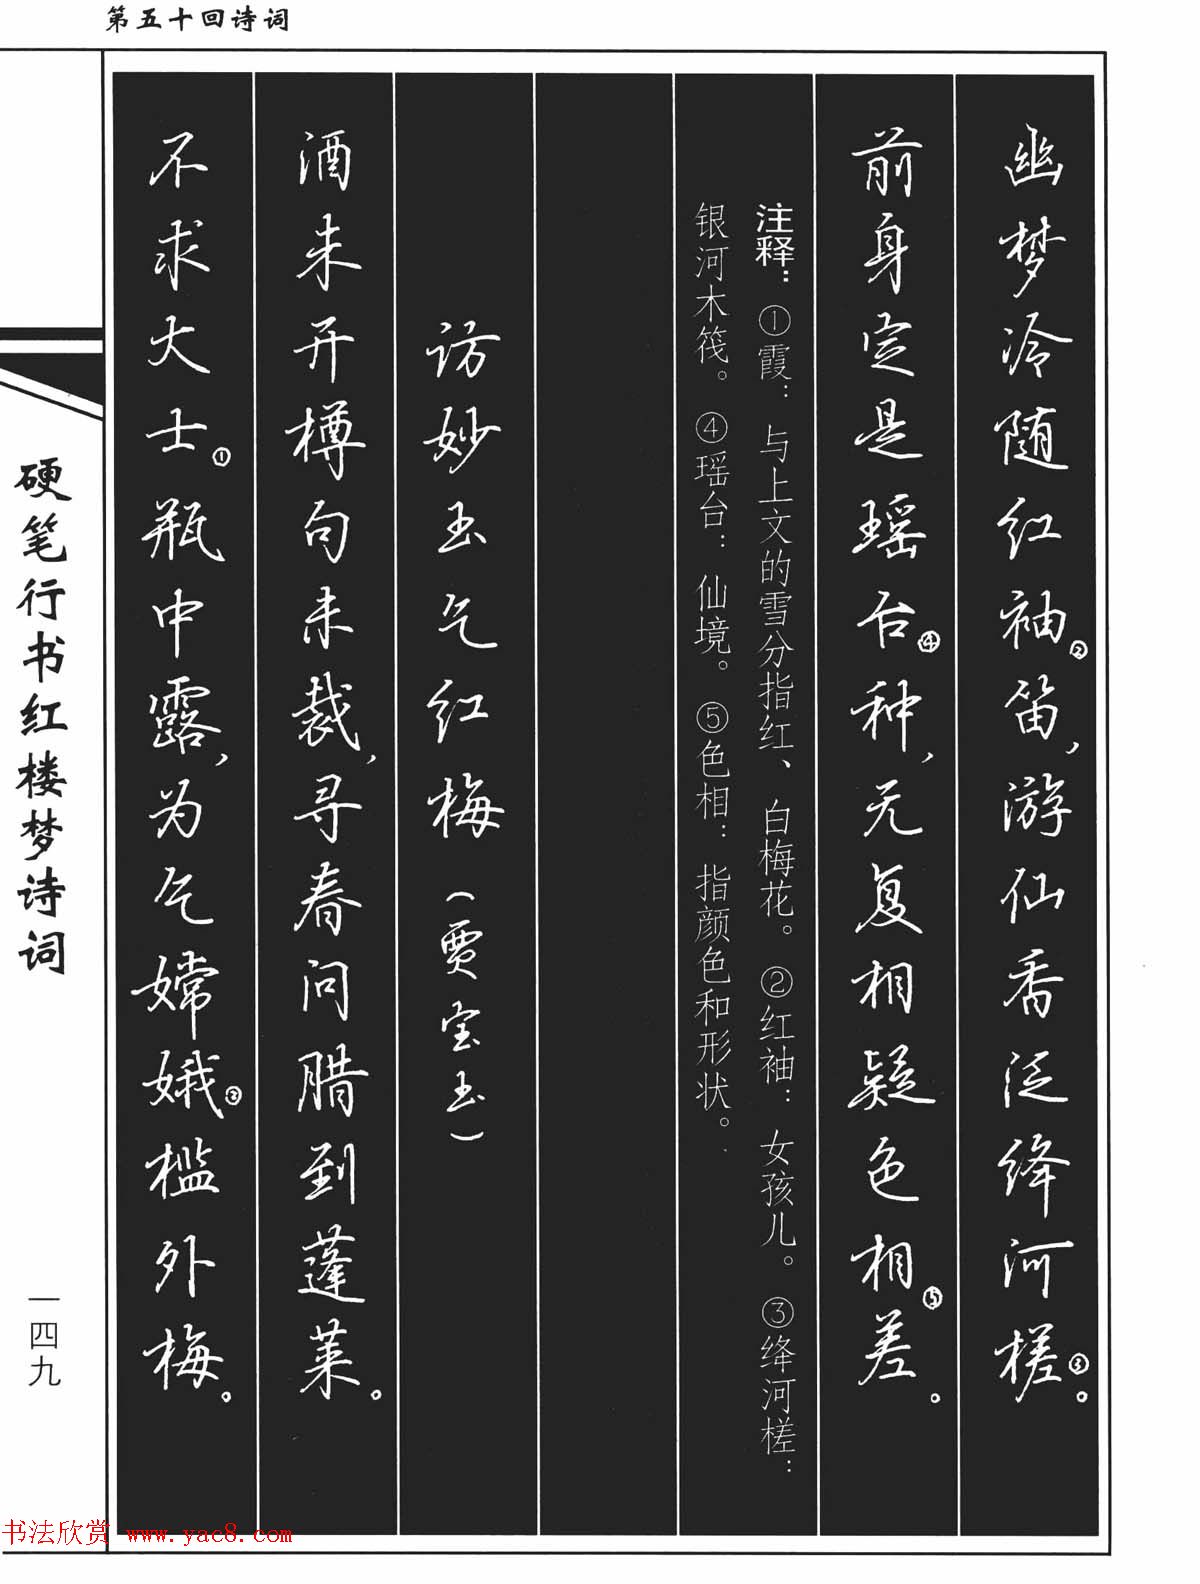 第五十回诗词
幽梦冷随红袖②笛，游仙香泛绛河槎③。
前身定是瑶台④种，无复相疑色相⑤差。
注释：①霞：与上文的雪分指红、白梅花。②红袖：女孩儿。③绛河槎：
银河木筏。④瑶台：仙境。⑤色相：指颜色和形状。
访妙玉乞红梅（贾宝玉）
酒未开樽句未裁，寻春问腊到蓬莱。
不求大士①瓶中露，为乞嫦娥②槛外梅。
硬笔行书红楼梦诗词
一四九
书法欣赏 www.yac8.com